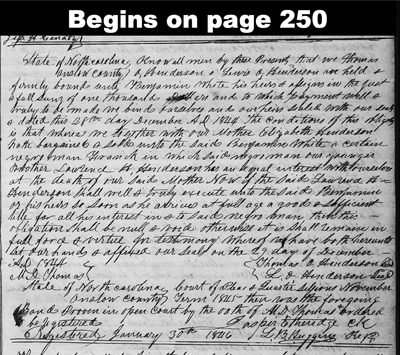 Begins on page 250
State of North carolina, Know all men by these Presents that we Thomas
Onslow County O, Henderson & Lewis O, Henderson are held &
firmly bound unto Benjamin White his heirs & assigns in the just
& full sum of one thousand Dollars and to which Payment well &
truly to be made we bind ourselves and our heirs Sealed with our seals
& dated this day December A,D 1844 The Conditions of this
is that where we together with our Mother Elizabeth Henderson
hath bargained & sold unto the said Benjamin White a certain
negro man in which said negro man our younger
Brother Lawrence Henderson has an equal interest with ourselves
at the death of our said Mother Now if the said Lawrence
Henderson shall well & truly execute unto the said Benjamin
or his heirs so soon as he arrives at full age a good & sufficient
title for all his interest in & to said negro man then this
obligation shall be null & void otherwise it is shall remain in
full force & virtue In testimony Where of we have both hereunto
set our hands & affixed our seal on the day of December
A,D 1844 Thomas O Henderson Seal
M. D. Thomas L. O Henderson Seal
State of North carolina, Court of Pleas & Quarter Sessions November
Onslow County Term 1845 then was the foregoing
Bond Proven in open Court by the oath of M. D. Thomas ordered
be registered Jasper Etheridge ck
Registered January 30th 1846 L. B. Huggins